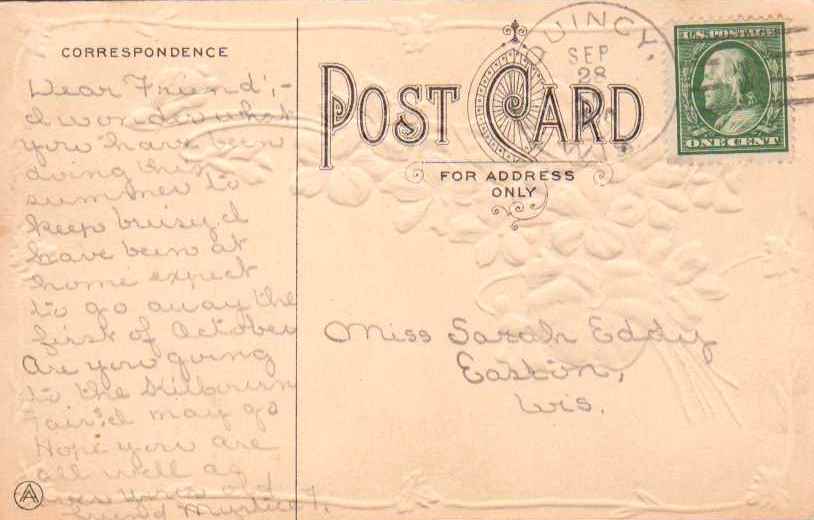 CORRESPONDENCE
POST CARD
FOR ADDRESS
ONLY
QUINCY,
SEP
28
WIS
U.S. POSTAGE
ONE CENT
Dear Friend;-
I wonder what
you have been
doing this
summer to
keep buisy I
have been at
home expect
to go away the
first of October
Are you going
to the Kilbourn
Fair? I may go
Hope you are
all well as
ever yours old
friend
Miss Sarah Eddy
Easton,
Wis.